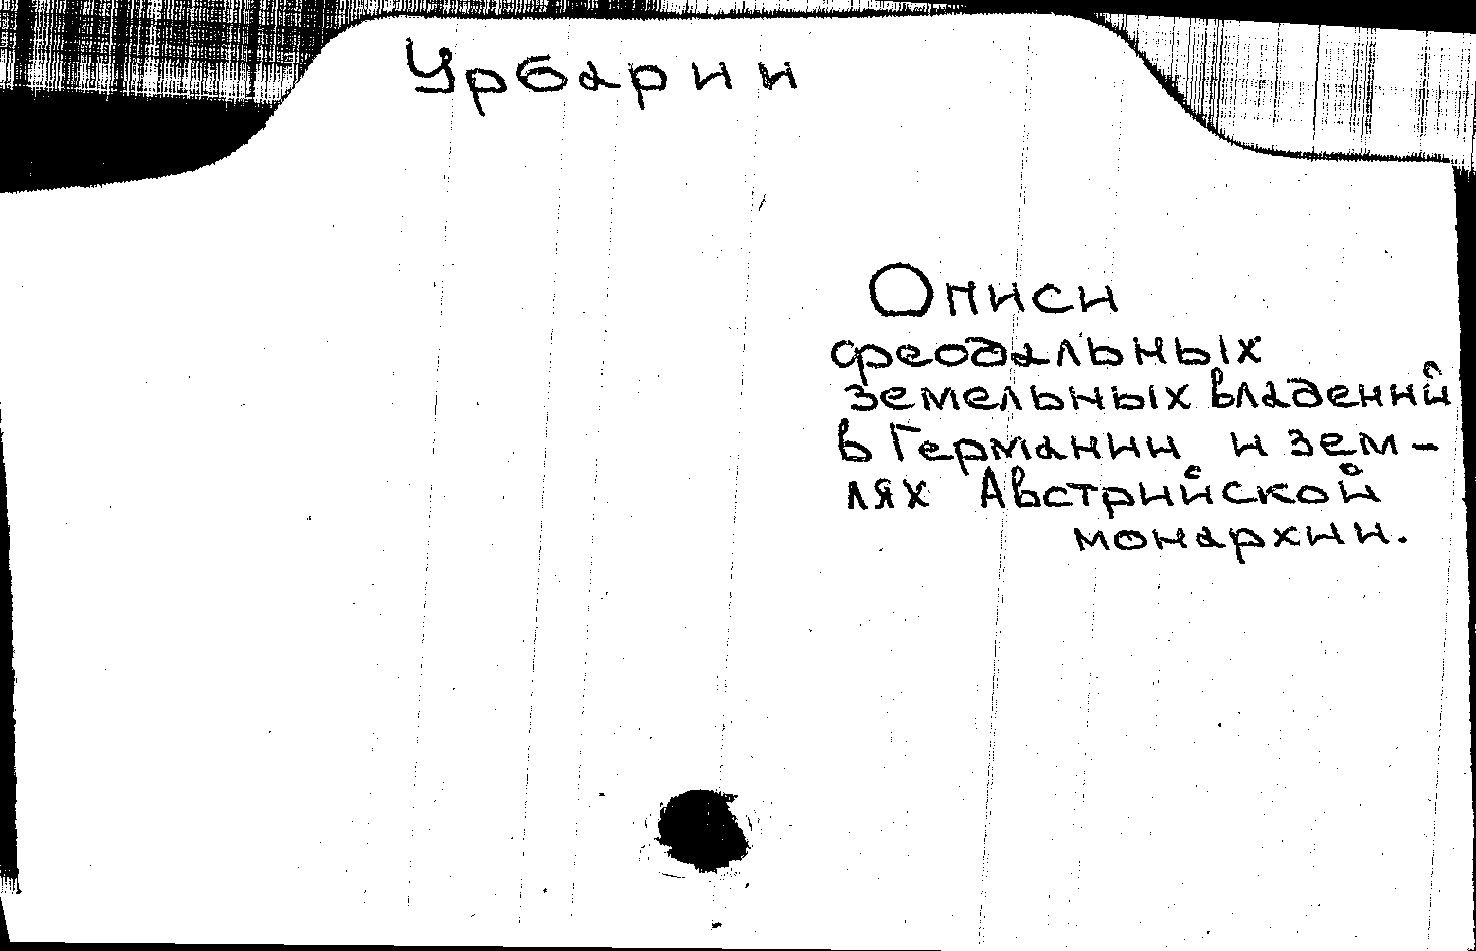 Урбарии
Описи
феодальных
земельных владений
в Германии и зем-
лях Австрийской
монархии.